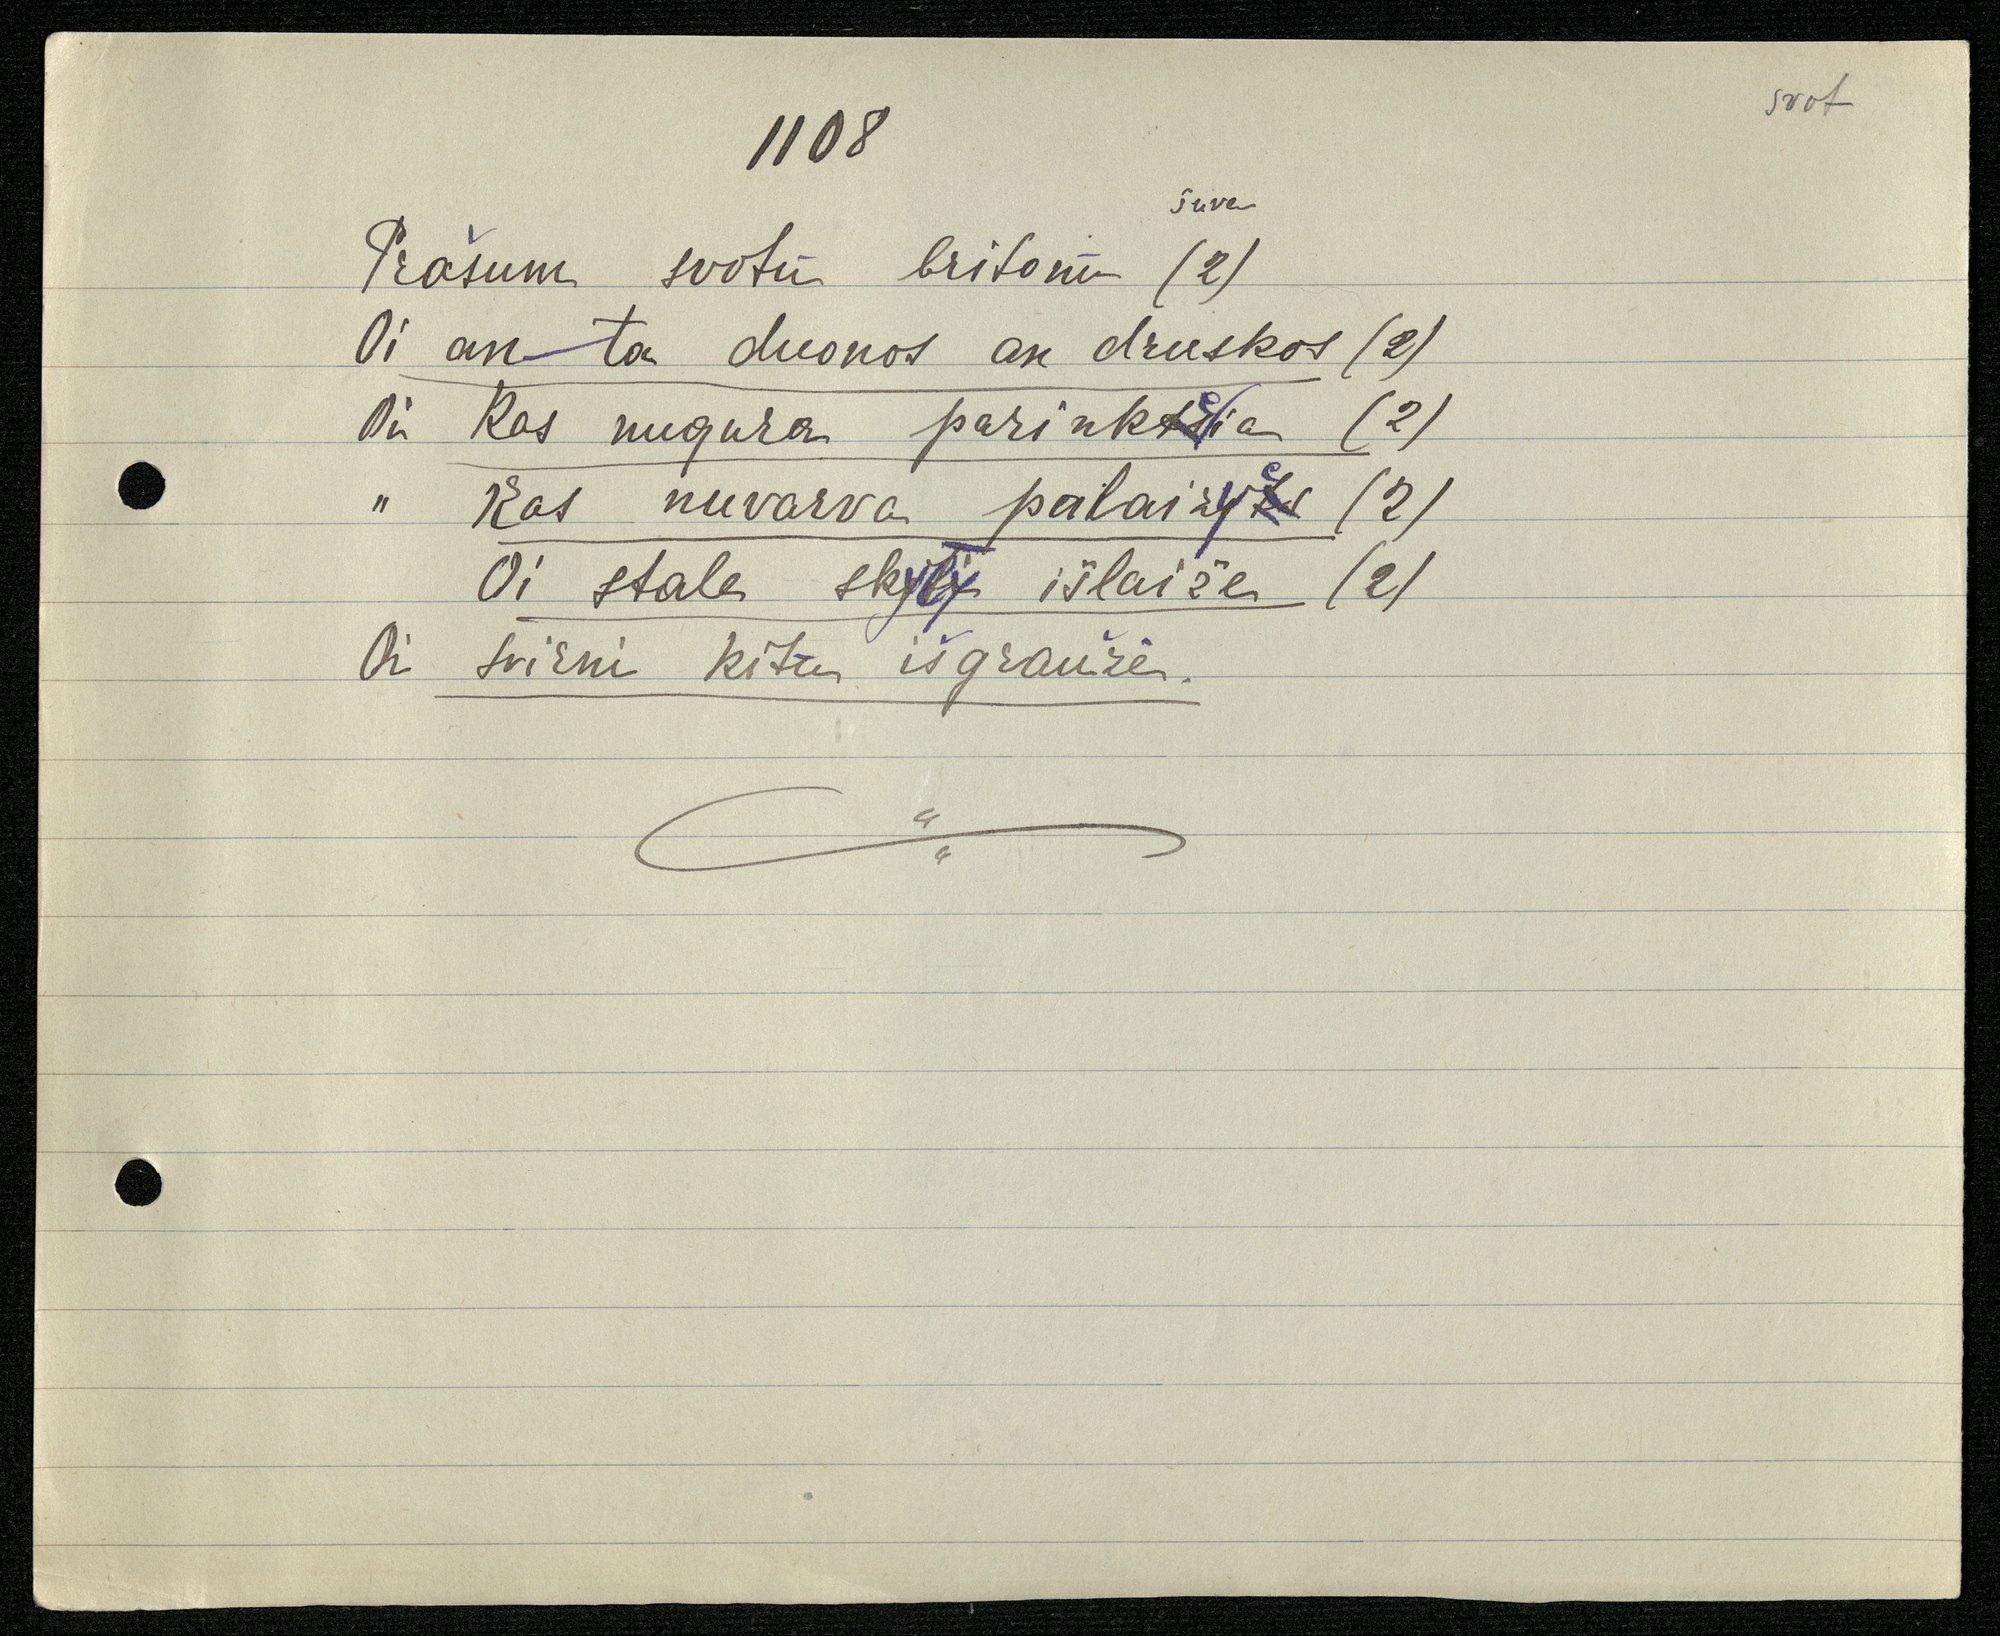 svot
1108
šuva
Prašum svotū britonū (2)
Oi an ta duonos an druskos (2)
Oi Kas nugura parinkčia (2)
" Kas nuvarva palaižys (2)
Oi stale skylį išlaiže (2)
Oi svirni kitū išgraužė.